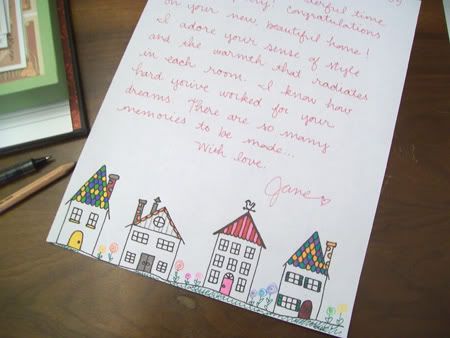 time
on your new, beautiful home!
I adore your sense of style
and the warmth that radiates
in each room. I know how
hard you've worked for your
dreams. There are so many
memories to be made...
With love,
Jane